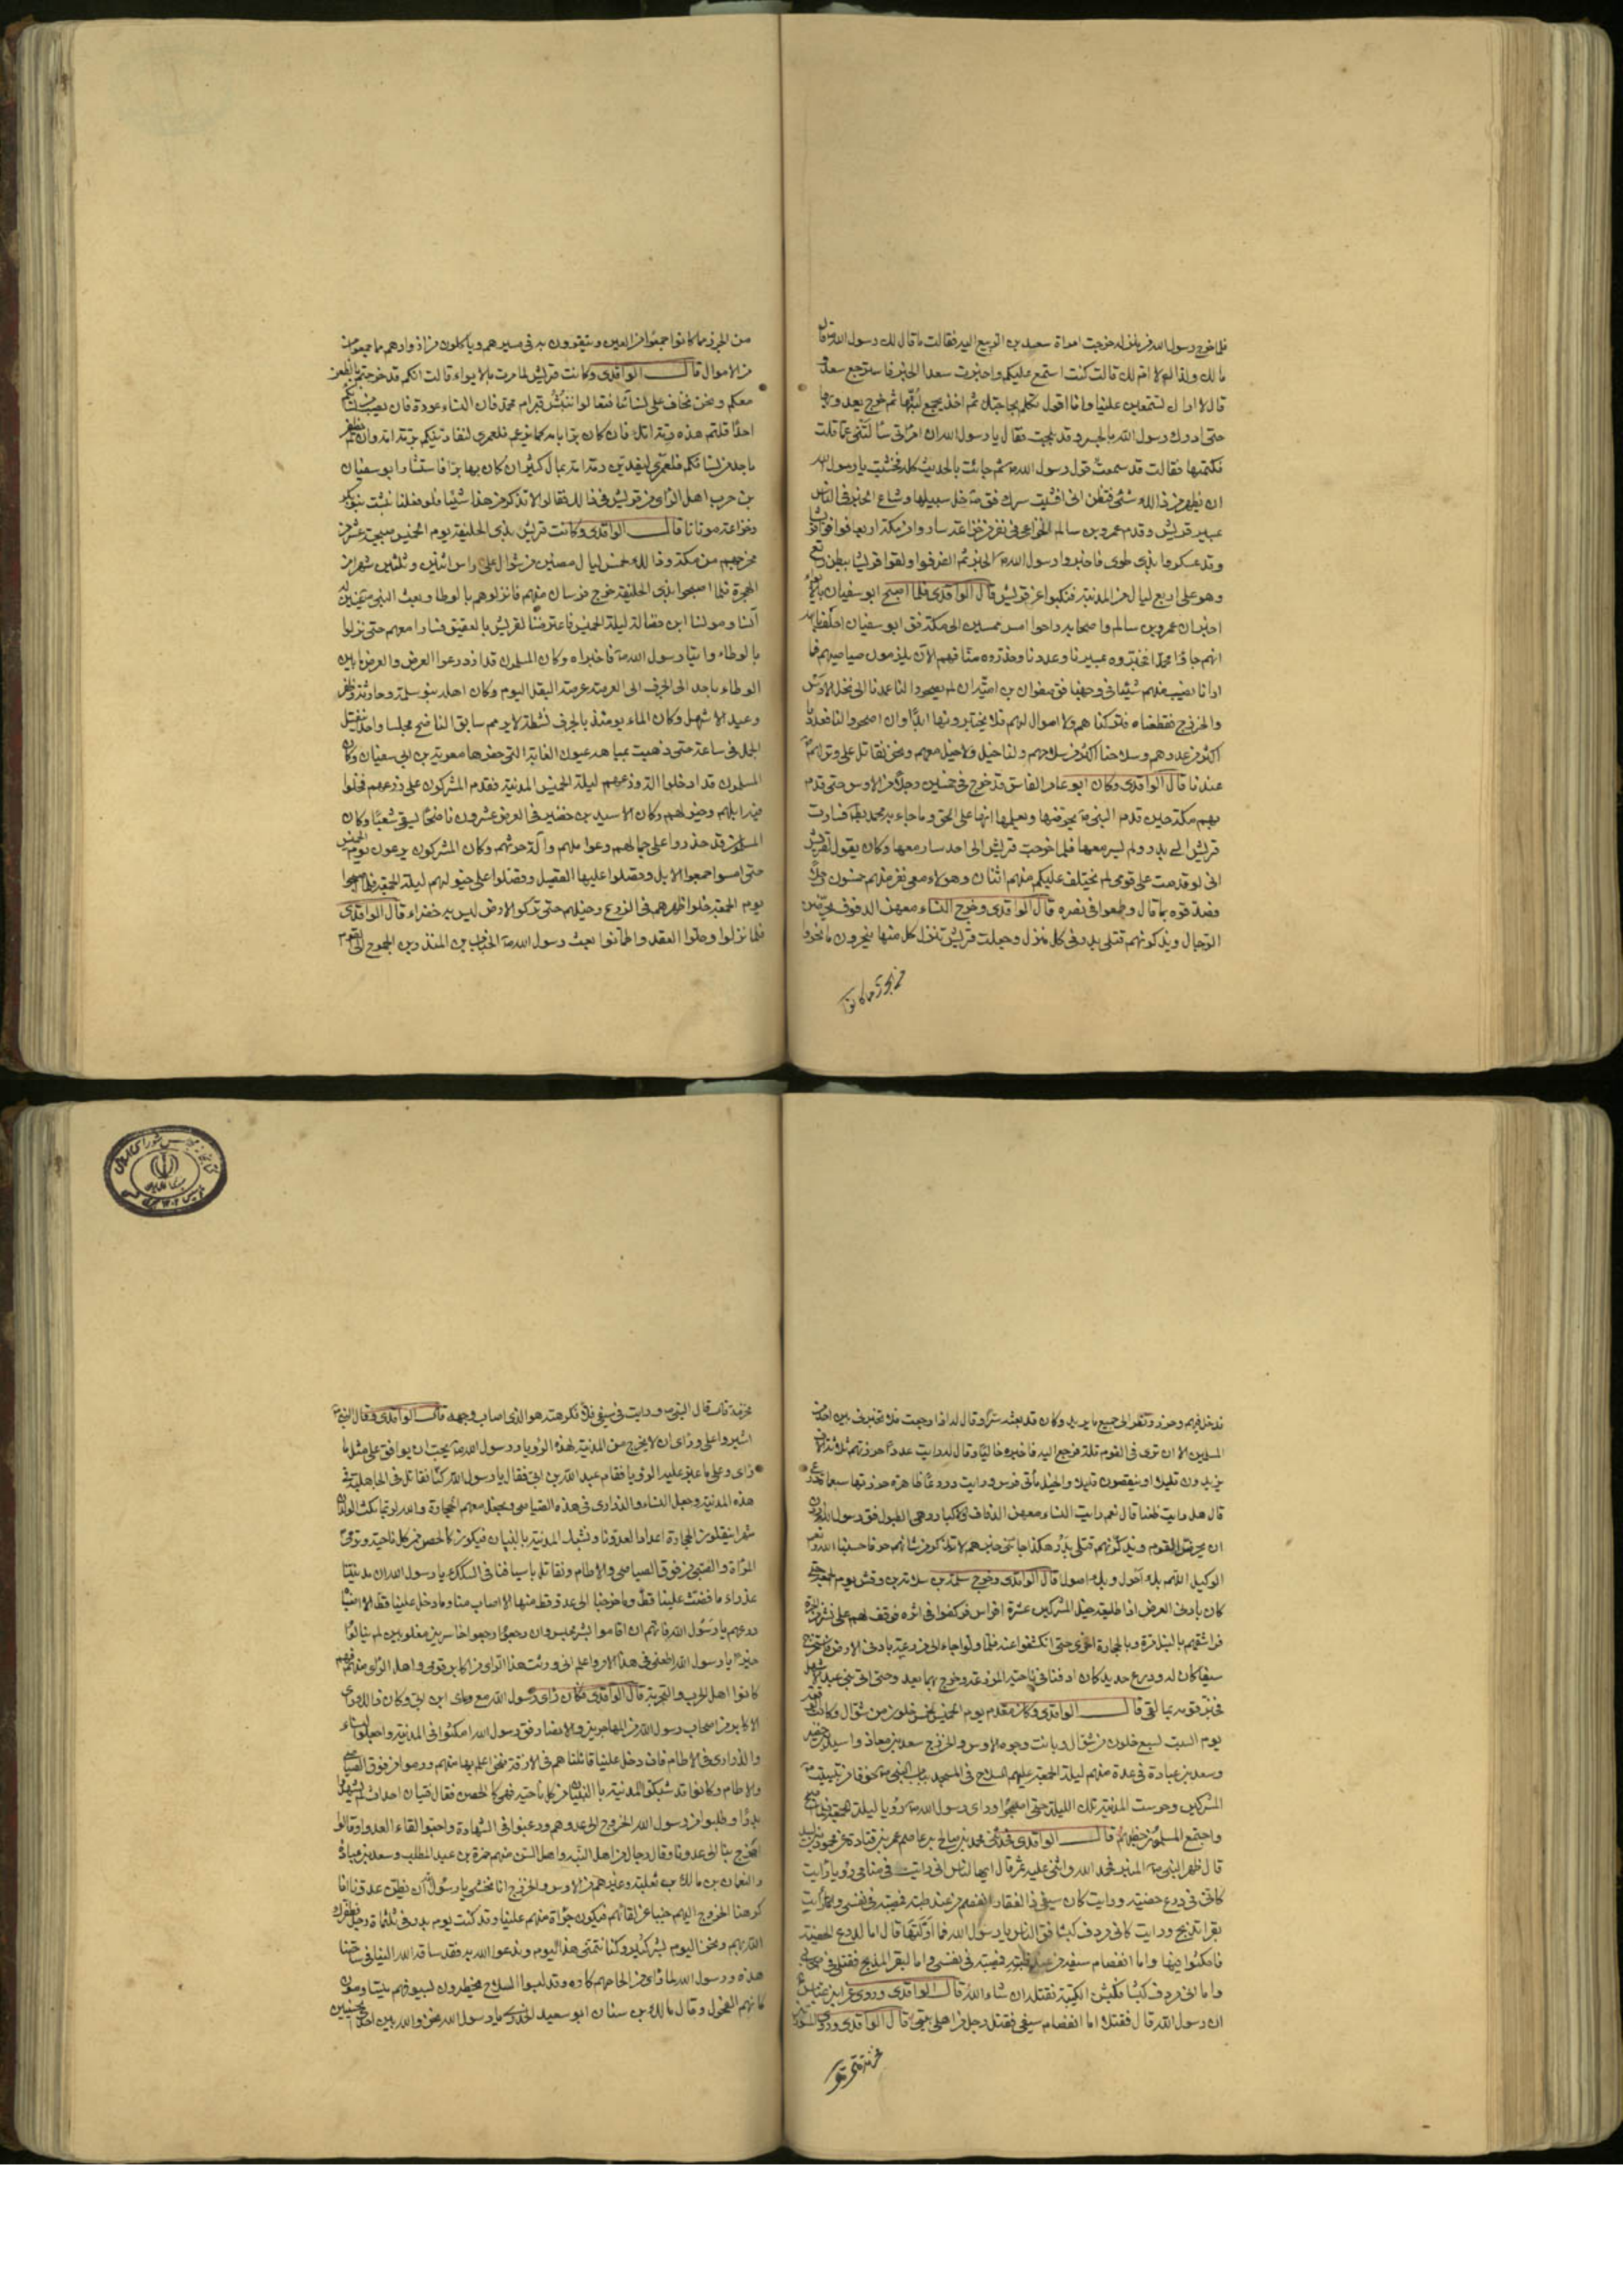 فلما خرج رسول الله من منزله خرجت امراة سعد بن الربيع اليه فقالت ما قال لك رسول الله قال
ما لك ولذا لا ام لك قالت كنت استمع عليكم واخبرت سعدا الخبر فاسترجع سعد و
قال لا اراك تستمعين علينا وانا اقول تكلم بحاجتك ثم اخذ بجمع لبتها ثم خرج يعدو بها
حتى ادرك رسول الله بالجسر وقد بلحت فقال يا رسول الله ان امراتى سالتنى عما قلت
فكتمتها فقالت قد سمعت قول رسول الله ثم جاءت بالحديث كله فخشيت يا رسول الله
ان يظهر من ذالك شئ فتظن انى افشيت سرك فقال خل سبيلها وشاع الخبر فى الناس
بمسير قريش وقدم عمرو بن سالم الخزاعى فى نفر من خزاعة ساروا من مكة اربعا فوافوا قريشا
وقد عسكروا بذى طوى فاخبروا رسول الله الخبر ثم انصرفوا ولقوا قريشا ببطن رابغ
وهو على اربع ليال من المدينة فنكبوا عن قريش قال الواقدى فلما اصبح ابو سفيان بالابواء
اخبر ان عمرو بن سالم واصحابه راحوا امس ممسين الى مكة فقال ابو سفيان احلف بالله
انهم جاؤا محمدا فخبروه بمسيرنا وعددنا وحذروه منا فهم الآن يلزمون صياصيهم فما
ارانا نصيب منهم شيئا فى وجهنا فقال صفوان بن امية ان لم يصحروا لنا عمدنا الى نخل الاوس
والخزرج فقطعناه فتركناهم ولا اموال لهم فلا يختارونها ابدا وان اصحروا لنا فعددنا
اكثر من عددهم وسلاحنا اكثر من سلاحهم ولنا خيل ولا خيل معهم ونحن نقاتل على وتر لهم
عندنا قال الواقدى وكان ابو عامر الفاسق قد خرج فى خمسين رجلا من الاوس حتى قدم
بهم مكة حين قدم النبى يحرضها ويعلمها انها على الحق وما جاء به محمد باطل فسارت
قريش الى بدر ولم يسر معها فلما خرجت قريش الى احد سار معها وكان يقول لقريش
انى لو قدمت على قومى لم يختلف عليكم منهم اثنان وهؤلاء معى نفر منهم خمسون رجلا
فصدقوه بما قال وطمعوا فى نصره قال الواقدى وخرج النساء معهن الدفوف يحرضن
الرجال ويذكرنهم قتلى بدر فى كل منزل وجعلت قريش تنزل كل منهل ينحرون ما نحروا
من الجزر مما كانوا
من الجزر مما كانوا جمعوا من العين ويتقوون به فى مسيرهم وياكلون من ازوادهم مما جمعوا من
من الاموال قال الواقدى وكانت قريش لما مرت بالابواء قالت انكم قد خرجتم بالظعن
معكم ونحن نخاف على نسائنا فتعالوا ننبش قبر ام محمد فان النساء عورة فان يصب من نسائكم
احدا قلتم هذه رمة امك فان كان برا بامه كما يزعم فلعمرى لنفاديكم برمة امه وان لم يظفر
باحد من نسائكم فلعمرى ليفدين رمة امه بمال كثير ان كان بها برا فاستشار ابو سفيان
بن حرب اهل الراى من قريش فى ذالك فقالوا لا تذكر من هذا شيئا فلو فعلنا نبشت بنو بكر
وخزاعة موتانا قال الواقدى وكانت قريش بذى الحليفة يوم الخميس صبيحة عشر من
مخرجهم من مكة وذالك لخمس ليال مضين من شوال على راس اثنين وثلثين شهرا من
الهجرة فلما اصبحوا بذى الحليفة خرج فرسان منهم فانزلوهم بالوطاء وبعث النبى عينين له
آنسا ومونسا ابنى فضالة ليلة الخميس فاعترضا لقريش بالعقيق فسارا معهم حتى نزلوا
بالوطاء واتيا رسول الله فاخبراه وكان المسلمون قد ازدرعوا العرض والعرض ما بين
الوطاء باحد الى الجرف الى العرصة عرصة البقل اليوم وكان اهله بنو سلمة وحارثة وظفر
وعبد الاشهل وكان الماء يومئذ بالجرف نشطة لا يريم سابق الناضح مجلسا واحدا ينفتل
الجمل فى ساعة حتى ذهبت بمياهه عيون الغابة التى حفرها معوية بن ابى سفيان وكان
المسلمون قد ادخلوا آلة زرعهم ليلة الخميس المدينة فقدم المشركون على زرعهم فخلوا
فيه ابلهم وخيولهم وكان لاسيد بن حضير فى العرض عشرون ناضحا يسقى شعيرا وكان
المسلمون قد حذروا على جمالهم وعمالهم وآلة حرثهم وكان المشركون يرعون يوم الخميس
حتى امسوا جمعوا الابل وقصلوا عليها القصيل وقصلوا على خيولهم ليلة الجمعة فلما اصبحوا
يوم الجمعة خلوا ظهرهم فى الزرع وخيلهم حتى تركوا الارض ليس بها خضراء قال الواقدى
فلما نزلوا وحلوا العقد واطمأنوا بعث رسول الله الحباب بن المنذر بن الجموح الى القوم
فدخل فيهم وحزر ونظر الى جميع ما يريد وكان قد بعثه سرا وقال له اذا رجعت فلا تخبرنى بين احد من
المسلمين الا ان ترى فى القوم قلة فرجع اليه فاخبره خاليا وقال له رايت عددا حزرتهم ثلاثة آلاف
يزيدون قليلا او ينقصون قليلا والخيل مأتى فرس ورايت دروعا ظاهرة حزرتها سبعمائة درع
قال هل رايت ظعنا قال نعم رايت النساء معهن الدفاف والاكبار وهى الطبول فقال رسول الله اردن
ان يحرضن القوم ويذكرنهم قتلى بدر هكذا جاءنى خبرهم لا تذكر من شانهم حرفا حسبنا الله ونعم
الوكيل اللهم بك اجول وبك اصول قال الواقدى وخرج سلمة بن سلامة بن وقش يوم الجمعة حتى
كان بادنى العرض اذا طليعة خيل المشركين عشرة افراس فركضوا فى اثره فوقف لهم على نشز من الحرة
فراشقهم بالنبل مرة وبالحجارة اخرى حتى انكشفوا عنه فلما ولوا جاء الى مزرعته بادنى العرض فاستخرج
سيفا كان له ودرع حديد كان ادفنا فى ناحية المزرعة وخرج بهما يعدو حتى اتى بنى عبد الاشهل
فخبر قومه بما لقى قال الواقدى وكان مقدم يوم الخميس لخمس خلون من شوال وكانت الوقعة
يوم السبت لسبع خلون من شوال وباتت وجوه الاوس والخزرج سعد بن معاذ واسيد بن حضير
وسعد بن عبادة فى عدة منهم ليلة الجمعة عليهم السلاح فى المسجد بباب النبى خوفا من تبييت
المشركين وحرست المدينة تلك الليلة حتى اصبحوا وراى رسول الله رؤيا ليلة الجمعة فلما اصبح
واجتمع المسلمون خطبهم قال الواقدى فحدثنى محمد بن صالح عن عاصم بن عمر بن قتادة عن محمود بن لبيد
قال ظهر النبى المنبر فحمد الله واثنى عليه ثم قال ايها الناس انى رايت فى منامى رؤيا رايت
كانى فى درع حصينة ورايت كان سيفى ذا الفقار انفصم من عند ظبته فى نفسى ورايت
بقرا تذبح ورايت كانى مردف كبشا فقال الناس يا رسول الله فما اولتها قال اما الدرع الحصينة
فامكثوا فيها واما انفصام سيفى من عند ظبته فمصيبة فى نفسى واما البقر المذبح فقتلى فى اصحابى
واما انى مردف كبشا فكبش الكتيبة نقتله ان شاء الله قال الواقدى وروى عن ابن عباس
ان رسول الله قال فقتلت اما انفصام سيفى فقتل رجل من اهل بيتى قال الواقدى وروى المسور بن
مخرمة قال قال النبى ورايت فى سيفى فلا فكرهته هو الذى اصاب وجهه قال الواقدى وقال النبى
اشيروا على وراى ان لا يخرج من المدينة لهذه الرؤيا ورسول الله يحب ان يوافق على مثل ما
راى وعلى ما عبر عليه الرؤيا فقام عبد الله بن ابى فقال يا رسول الله كنا نقاتل فى الجاهلية فى
هذه المدينة ونجعل النساء والذرارى فى هذه الصياصى ونجعل معهم الحجارة والله لربما مكث الولدان
شهرا ينقلون الحجارة اعدادا لعدونا ونشبك المدينة بالبنيان فيكون كالحصن من كل ناحية وترمى
المراة والصبى من فوق الصياصى والاطام ونقاتل باسيافنا فى السكك يا رسول الله ان مدينتنا
عذراء ما فضت علينا قط وما خرجنا الى عدو قط منها الا اصاب منا وما دخل علينا قط الا اصبنا
دعهم يا رسول الله فانهم ان اقاموا بشر محبس وان رجعوا رجعوا خاسرين مغلوبين لم ينالوا
خيرا يا رسول الله اطعنى فى هذا الامر واعلم انى ورثت هذا الراى من اكابر قومى واهل الراى منهم فهم
كانوا اهل الحرب والتجربة قال الواقدى فكان راى رسول الله مع راى ابن ابى وكان ذالك راى
الاكابر من اصحاب رسول الله من المهاجرين والانصار فقال رسول الله امكثوا فى المدينة واجعلوا النساء
والذرارى فى الاطام فان دخل علينا قاتلناهم فى الازقة فنحن اعلم بها منهم ورموا من فوق الصياصى
والاطام وكانوا قد شبكوا المدينة بالبنيان من كل ناحية فهى كالحصن فقال فتيان احداث لم يشهدوا
بدرا وطلبوا من رسول الله الخروج الى عدوهم ورغبوا فى الشهادة واحبوا لقاء العدو وقالوا
اخرج بنا الى عدونا وقال رجال من اهل النبه واهل السن منهم حمزة بن عبد المطلب وسعد بن عبادة
والنعمان بن مالك بن ثعلبة وغيرهم من الاوس والخزرج انا نخشى يا رسول الله ان يظن عدونا انا
كرهنا الخروج اليهم جبنا عن لقائهم فيكون جراة منهم علينا وقد كنت يوم بدر فى ثلثماة رجل فظفرك
الله بهم ونحن اليوم بشر كثير وكنا نتمنى هذا اليوم وندعوا الله به فقد ساقه الله الينا فى ساحتنا
هذه ورسول الله لما راى من الحاحهم كاره وقد لبسوا السلاح يخطرون بسيوفهم يتسامون
كانهم الفحول وقال مالك بن سنان ابو سعيد الخدرى يا رسول الله نحن والله بين احدى الحسنيين